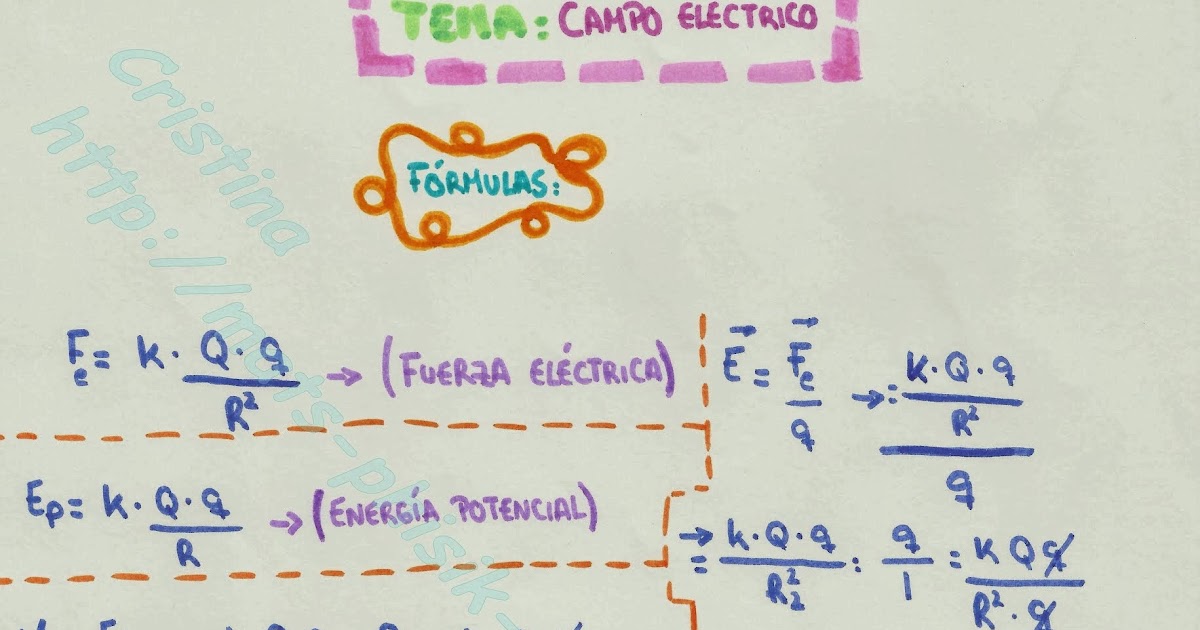 TEMA: CAMPO ELÉCTRICO
FÓRMULAS:
Fe = K · Q · q / R² → (FUERZA ELÉCTRICA)
Ep = K · Q · q / R → (ENERGÍA POTENCIAL)
E⃗ = F⃗e / q → = K · Q · q / R² / q
→ = K · Q · q / R²₂ : q / 1 = K Q q / R² · q
Cristina
http://mats-phisik-